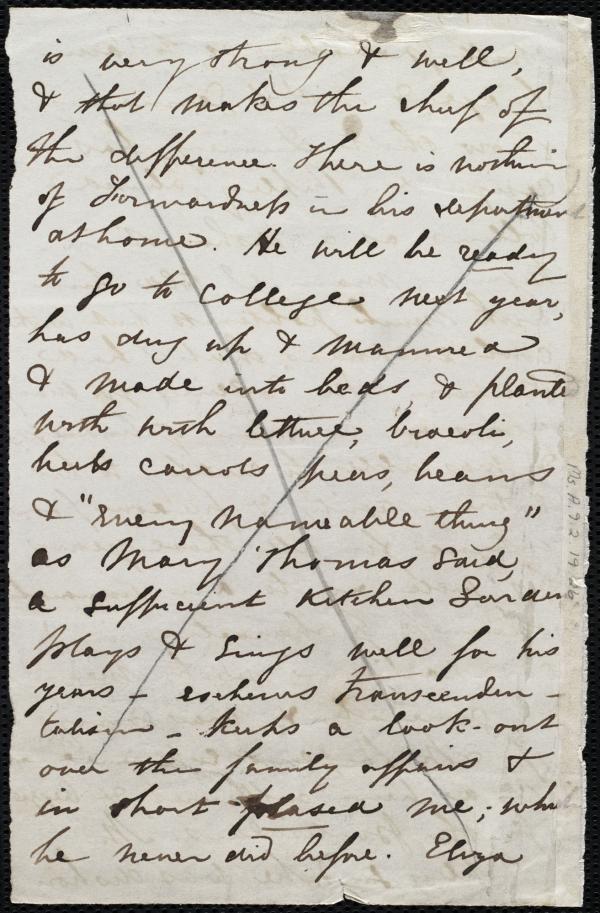 is very strong & well,
& that makes the chief of
the difference. There is nothing
of Forwardness in his department
at home. He will be ready
to go to College next year,
has dug up & manured
& made into beds, & plante
with with lettuce, brocoli,
herbs carrots pears, beans
& "Every nameable thing"
as Mary Thomas said,
a sufficient Kitchen Garden
plays & sings well for his
years - eschews transcenden-
talism - keeps a look-out
over the family affairs &
in short pleased me; who
he never did before. Eliza
Ms. A. 9. 2. 19.